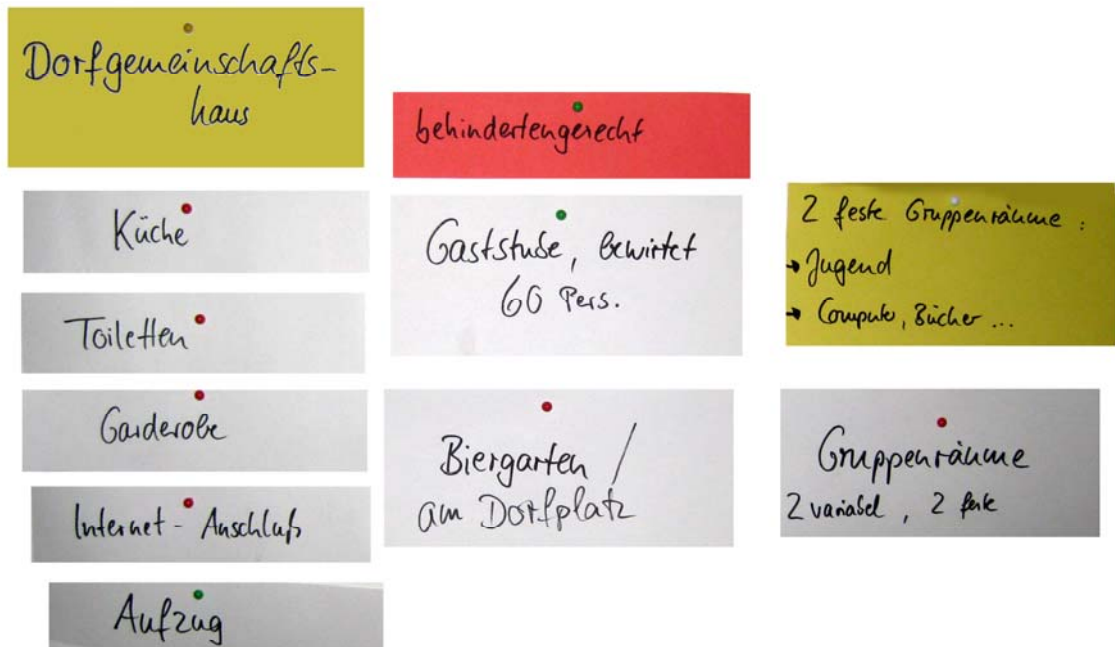 Dorfgemeinschafts-
haus
Küche
Toiletten
Garderobe
Internet - Anschluß
Aufzug
behindertengerecht
Gaststube, bewirtet
60 Pers.
Biergarten /
am Dorfplatz
2 feste Gruppenräume :
→ Jugend
→ Computer, Bücher ...
Gruppenräume
2 variabel, 2 feste